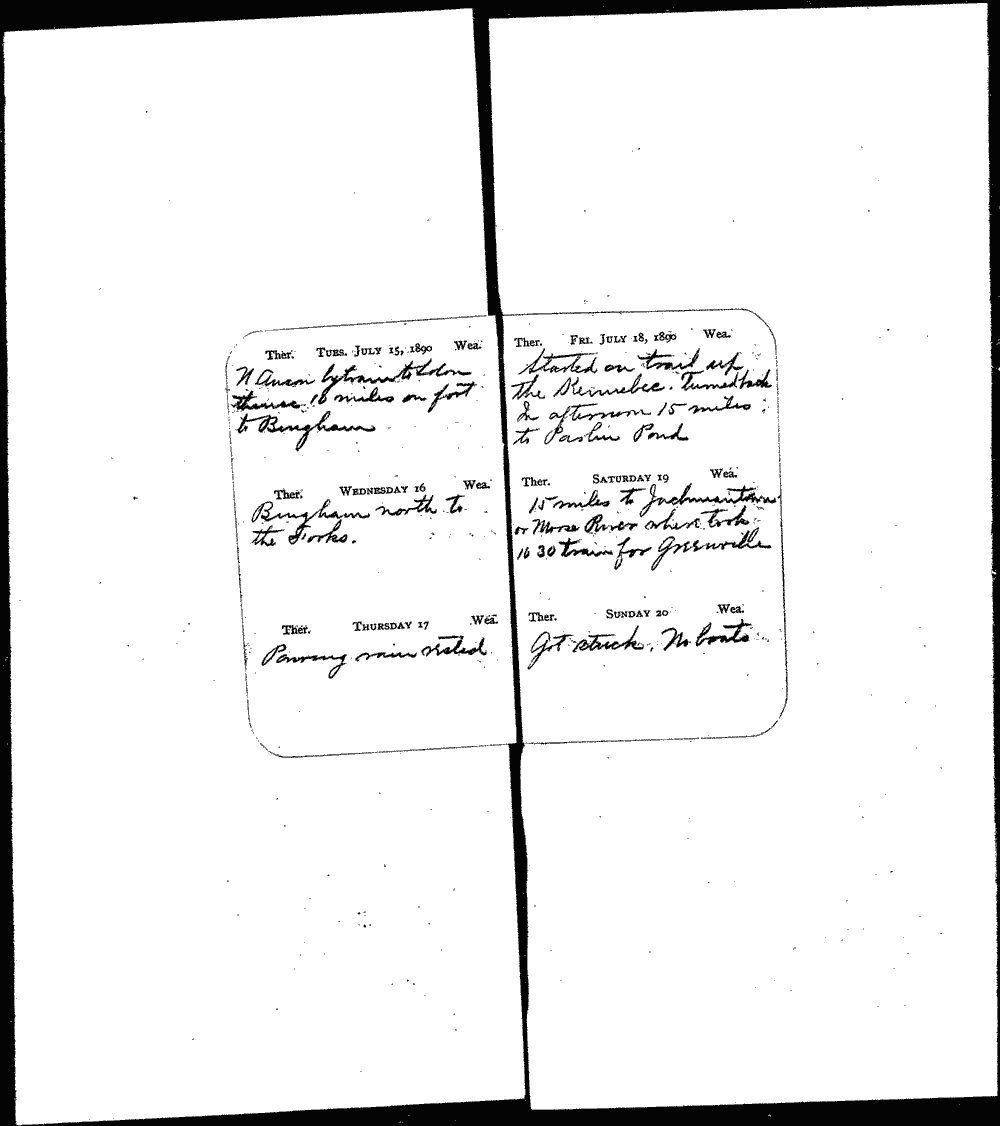 Ther. TUES. JULY 15, 1890 Wea.
N Anson by train to Solon
thence 16 miles on foot
to Bingham
Ther. WEDNESDAY 16 Wea.
Bingham north to
the Forks.
Ther. THURSDAY 17 Wea.
Pouring rain rested
Ther. FRI. JULY 18, 1890 Wea.
Started on trail up
the Kennebec. Turned back
In afternoon 15 miles
to Parlin Pond
Ther. SATURDAY 19 Wea.
15 miles to Jackmantown
or Moose River where took
10 30 train for Greenville
Ther. SUNDAY 20 Wea.
Got stuck. No boats